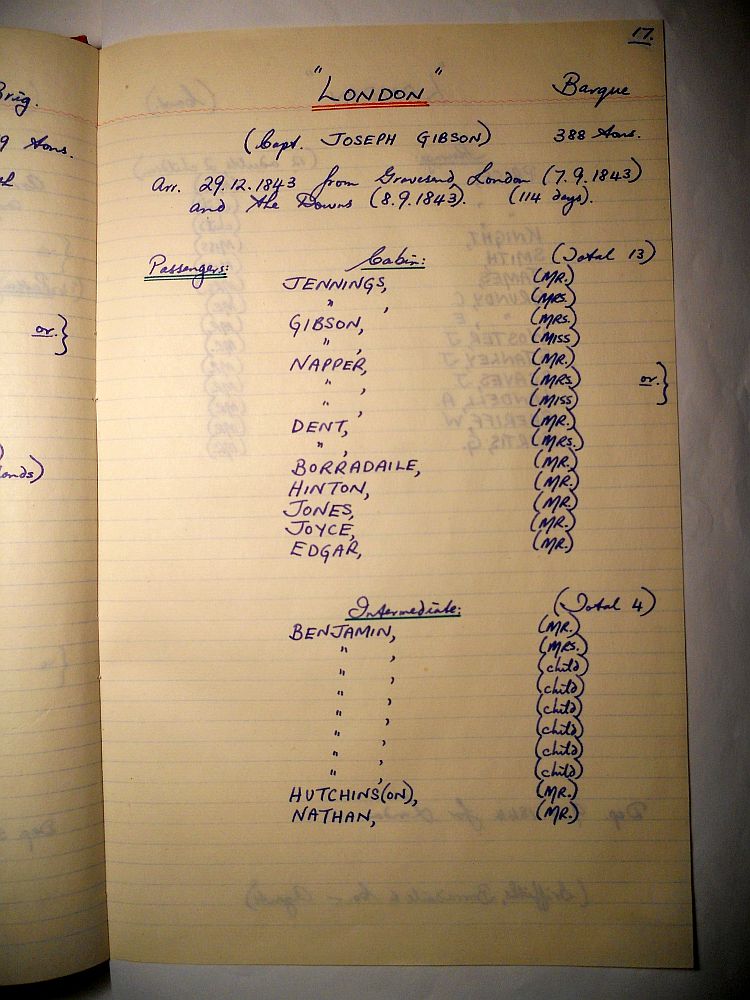 17.
"LONDON" Barque
(Capt. JOSEPH GIBSON) 388 tons.
Arr. 29.12.1843 from Gravesend, London (7.9.1843)
and the Downs (8.9.1843). (114 days).
Passengers: Cabin: (Total 13)
JENNINGS, (MR.)
" , (MRS.)
GIBSON, (MRS.)
" , (MISS)
NAPPER, (MR.)
" , (MRS. or }
" , (MISS)
DENT, (MR.)
" , (MRS.)
BORRADAILE, (MR.)
HINTON, (MR.)
JONES, (MR.)
JOYCE, (MR.)
EDGAR, (MR.)
Intermediate: (Total 4)
BENJAMIN, (MR.)
" , (MRS.)
" , (child)
" , (child)
" , (child)
" , (child)
" , (child)
" , (child)
HUTCHINS(ON), (MR.)
NATHAN, (MR.)
Brig.
9 tons.
or }